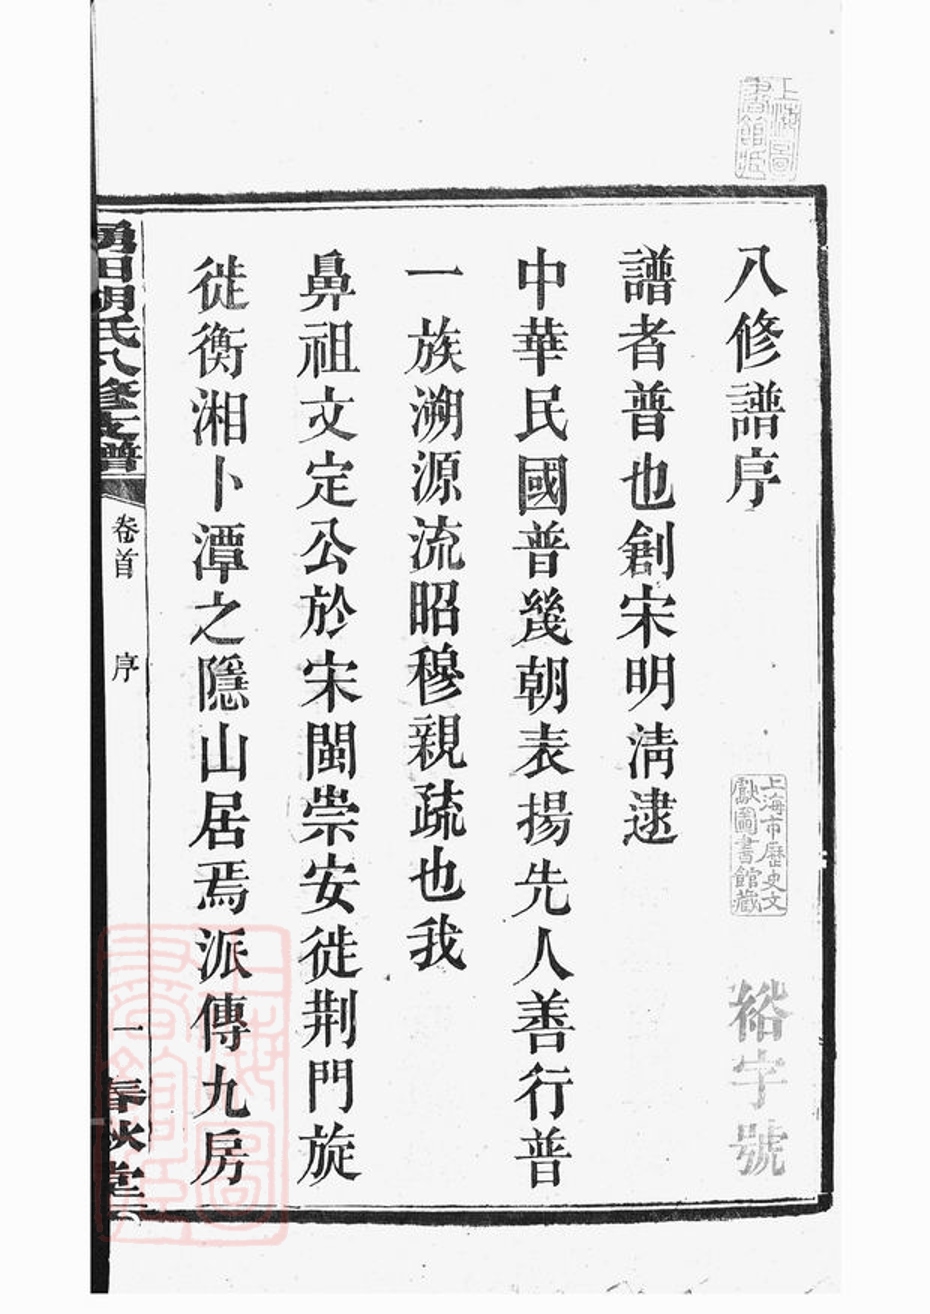 八修譜序
裕字號
譜者普也創宋明淸逮
中華民國普幾朝表揚先人善行普
一族溯源流昭穆親疏也我
鼻祖文定公於宋閩崇安徙荆門旋
徙衡湘卜潭之隱山居焉派傳九房
田胡氏八修支譜
卷首 序
一 春秋堂
上海圖書館藏
上海市歷史文獻圖書館藏
上海圖書館藏